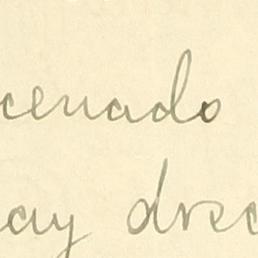 cenado
ay drec